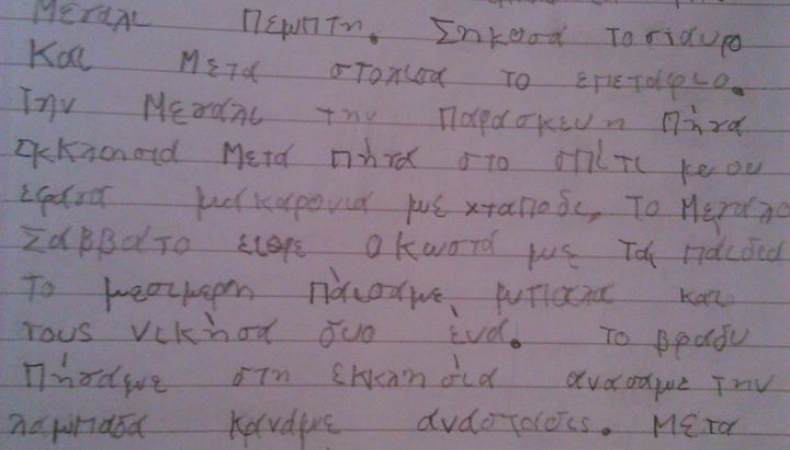 Μεγαλι Πεμπτη. Σηκοσα το σταυρο
Και Μετα στολισα το επεταφιο.
Την Μεγαλι την Παρασκευη πήγα
εκκλησιά Μετά πήγα στο σπίτι
εφαγα μακαρονια με χταποδι, το Μεγαλο
Σαββατο ειρθε ο Κωστά με τα παιδιά
το μεσιμερη πάισαμε μπιαλα και
τους νικήσα δυο ένα. το βραδυ
Πήγαμε στη εκκλησιά αναψαμε την
λαμπαδα καναμε αναστασις. Μετα